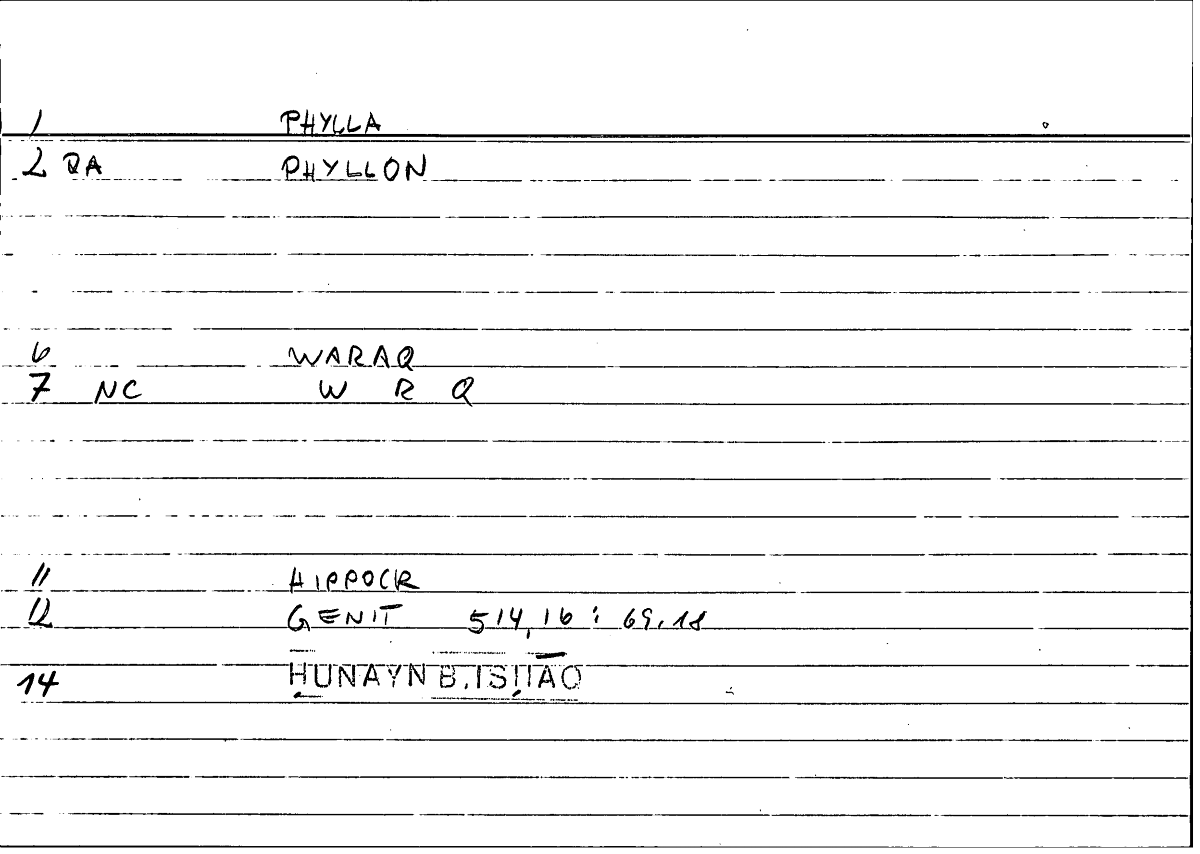 1 PHYLLA
2 QA PHYLLON
6 WARAQ
7 NC W R Q
11 HIPPOCR
12 GENIT 514,16 : 69,18
14 ḤUNAYN B. ISḤĀQ